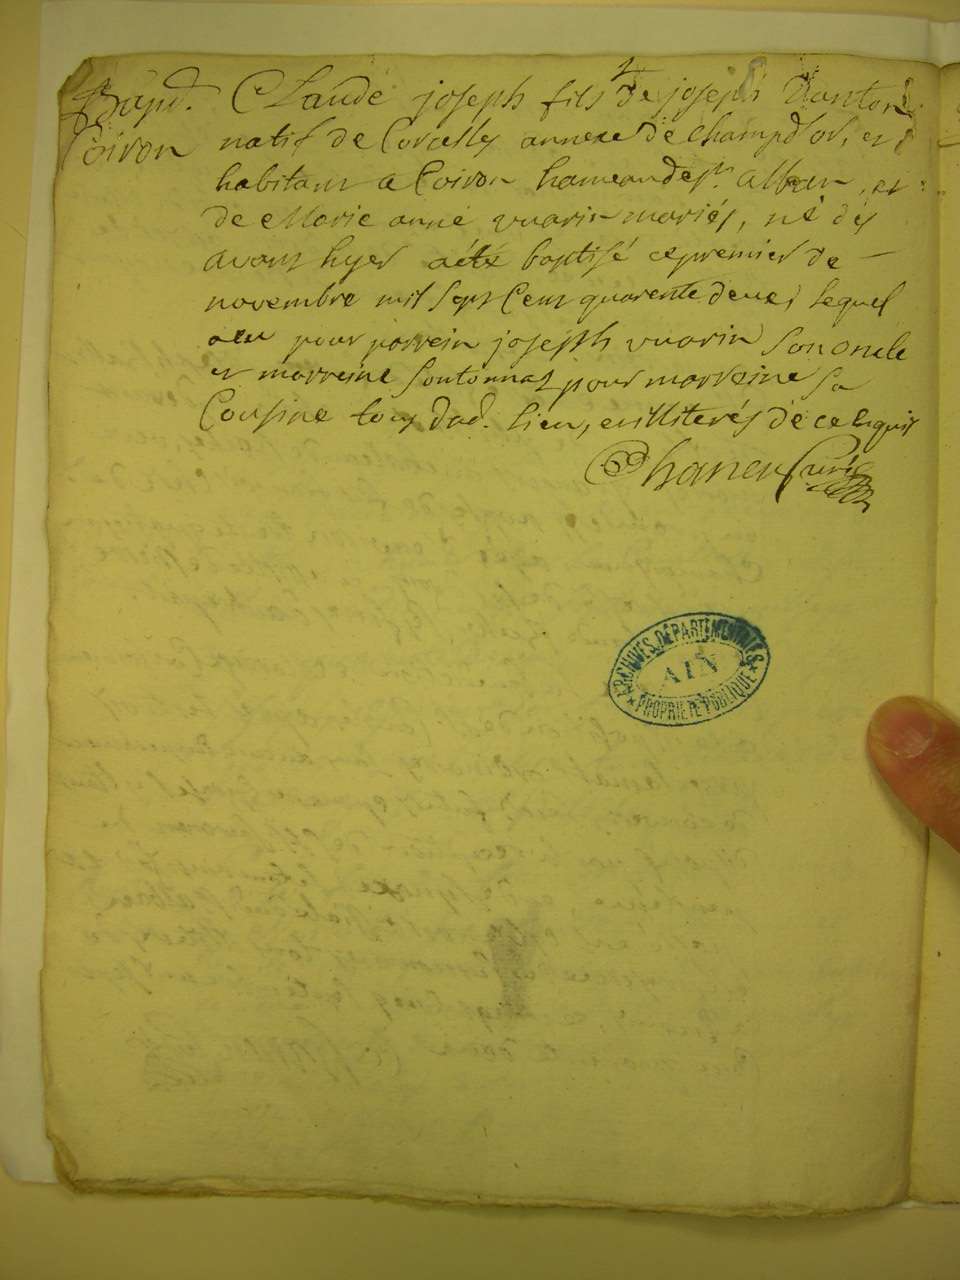 Bapd. Claude joseph fils de joseph
Coiron natif de Corcelly annexe de Champdor, et
habitant a Coiron hameau de st. alban, et
de Marie anne vuarin mariés, né dès
avant hyer a été baptisé ce premier de
novembre mil sept Cent quarente deux, lequel
a eu pour parrein joseph vuarin son oncle
et marreine pour marreine sa
Cousine tous dud. lieu, enilliterés de ce enquis
Curé
ARCHIVES DÉPARTEMENTALES
AIN
PROPRIÉTÉ PUBLIQUE